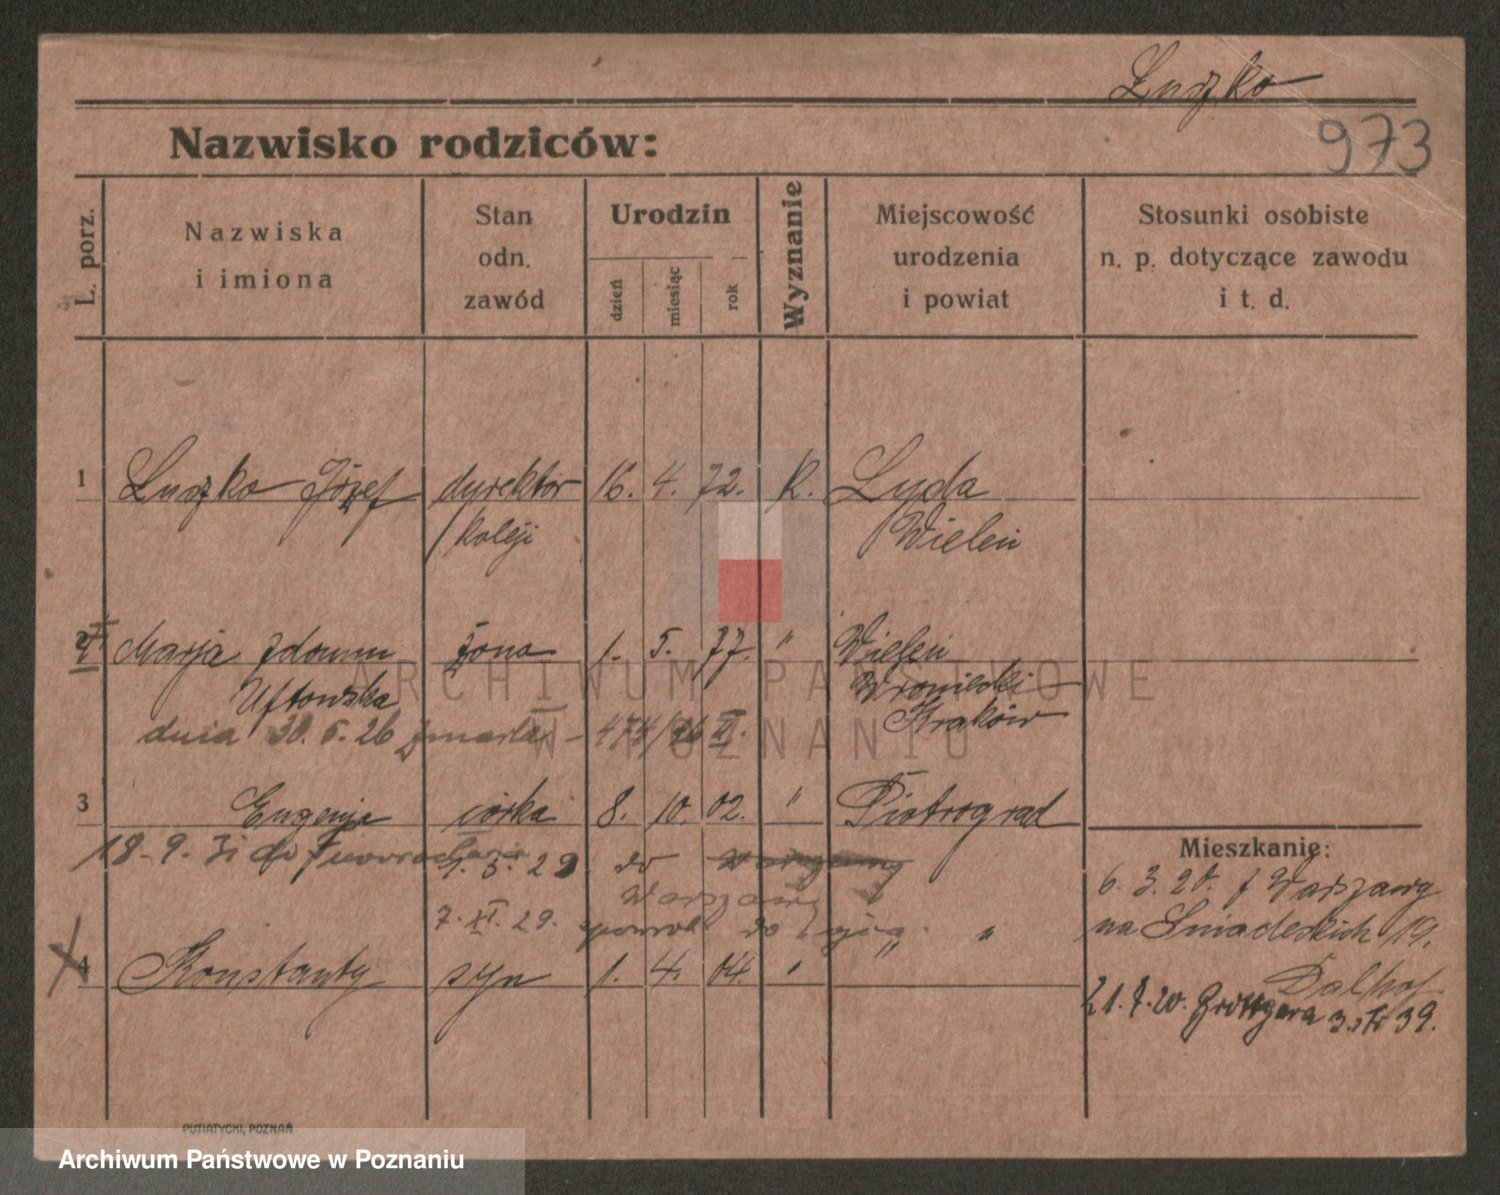 Łuszko
973
Nazwisko rodziców:
L. porz.
Nazwiska
i imiona
Stan
odn.
zawód
Urodzin
dzień
miesiąc
rok
Wyznanie
Miejscowość
urodzenia
i powiat
Stosunki osobiste
n. p. dotyczące zawodu
i t. d.
1 Łuszko Józef dyrektor 16. 4. 72. K. Lyda
koleji Wieleń
2 Marja żona 1. 5. 77. " Wieleń
Kraków
dnia 30. 6. 26 zmarła - 474/26 II.
3 Eugenja córka 8. 10. 02. " Piotrograd
18-9. 31 do Inowrocławia
1. 3. 29 do
Warszawy
7. XI. 29. do " "
4 Konstanty syn 1. 4. 04. "
Mieszkanie:
6. 3. 20. z Warszawy
na Śniadeckich 19.
21. 7. 20. Grottgera 3 39.
PUTIATYCKI, POZNAŃ
ARCHIWUM PAŃSTWOWE
W POZNANIU
Archiwum Państwowe w Poznaniu